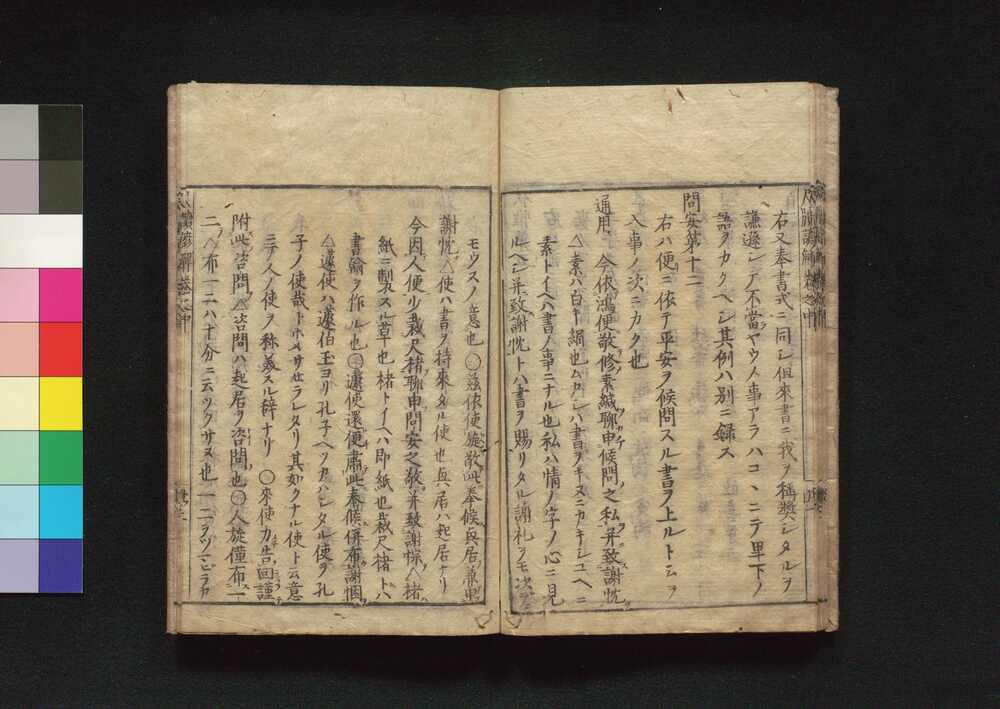 右又奉書式ニ同シ但來書ニ我ヲ稱奬シタルヲ
謙遜シテ不當ヤウノ事アラハコヽニテ畢下ノ
語ヲカクヘシ其例ハ別ニ録ス
問安第十二
右ハ便ニ依テ平安ヲ候問スル書ヲ上ルト云フ
入事ノ次ニカク也
通用 今依鴻便敬修素緘聊申候問之私并致謝忱
△素ハ白キ絹也ムカシハ書ヲキヌニカキシユヘニ
素トイヘハ書ノ事ニナル也私ハ情ノ字ノ心ニ見
ルヘシ并致謝忱トハ書ヲ賜リタル謝礼ヲモ次ヲ
モウスノ意也 ○茲依使旋敬此奉候興居兼申
謝忱 △使ハ書ヲ持來タル使也興居ハ起居ナリ
今因人便少裁尺楮聊申問安之敬并致謝悰 △楮
紙ニ製スル草也楮トイヘハ即紙也裁尺楮トハ
書翰ヲ作ル也 ○蘧使還便肅此奉候併布謝悃
△蘧使ハ蘧伯玉ヨリ孔子ヘツカハシタル使ヲ孔
子ノ使哉トホメサセラレタリ其如クナル使ト云意
ニテ人ノ使ヲ称美スル辞ナリ ○來使力告回謹
附此咨問 △咨問ハ起居ヲ咨問也 ○人旋僅布一
二 △布一二ハ十分ニ云ツクサス也一二ヲ